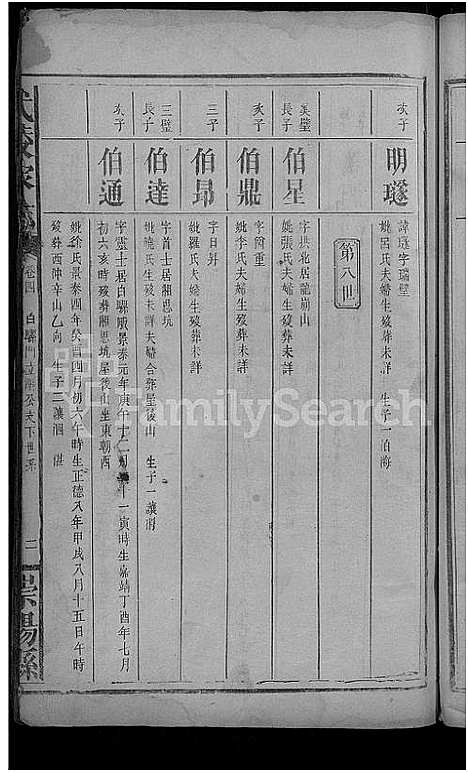 次子
明璲
諱璲字瑞璧
妣呂氏夫婦生歿葬未詳 生子一伯海
第八世
美璧長子
伯星
字拱北居龍崩山
妣張氏夫婦生歿葬未詳
次子
伯鼎
字尚重
妣李氏夫婦生歿葬未詳
三子
伯昂
字日昇
妣羅氏夫婦生歿葬未詳
三璧長子
伯達
字首士居湘思坑
妣饒氏生歿未詳夫婦合葬屋後山 生子一讓
次子
伯通
字靈士居白騾廄景泰元年庚午十二月十一寅時生嘉靖丁酉年七月
初六亥時歿葬湘思坑屋後山坐東朝西
妣徐氏景泰四年癸酉四月初六午時生正德八年甲戌八月十五日午時
歿葬西沖辛山乙向 生子三讓 湛
卷四
二
崇陽縣
FamilySearch